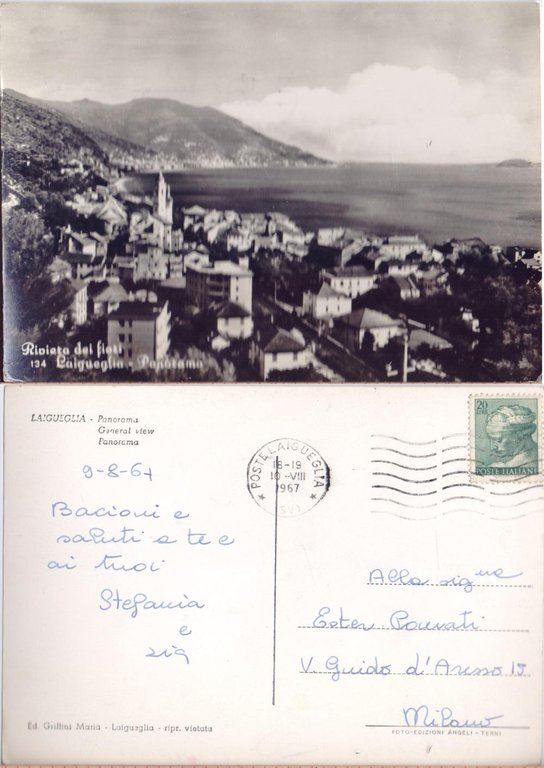 Riviera dei fiori
134 Laigueglia - Panorama
LAIGUEGLIA - Panorama
General view
Panorama
9-8-67
Bacioni e
saluti a te e
ai tuoi
Stefania
e
zia
POSTE LAIGUEGLIA
18-19
10-VIII
1967
(SV)
20
LIRE
POSTE ITALIANE
Alla sig.na
Ester
V. Guido d'Arezzo 15
Milano
Ed. Griffini Maria - Laigueglia - ripr. vietata
FOTO-EDIZIONI ANGELI - TERNI